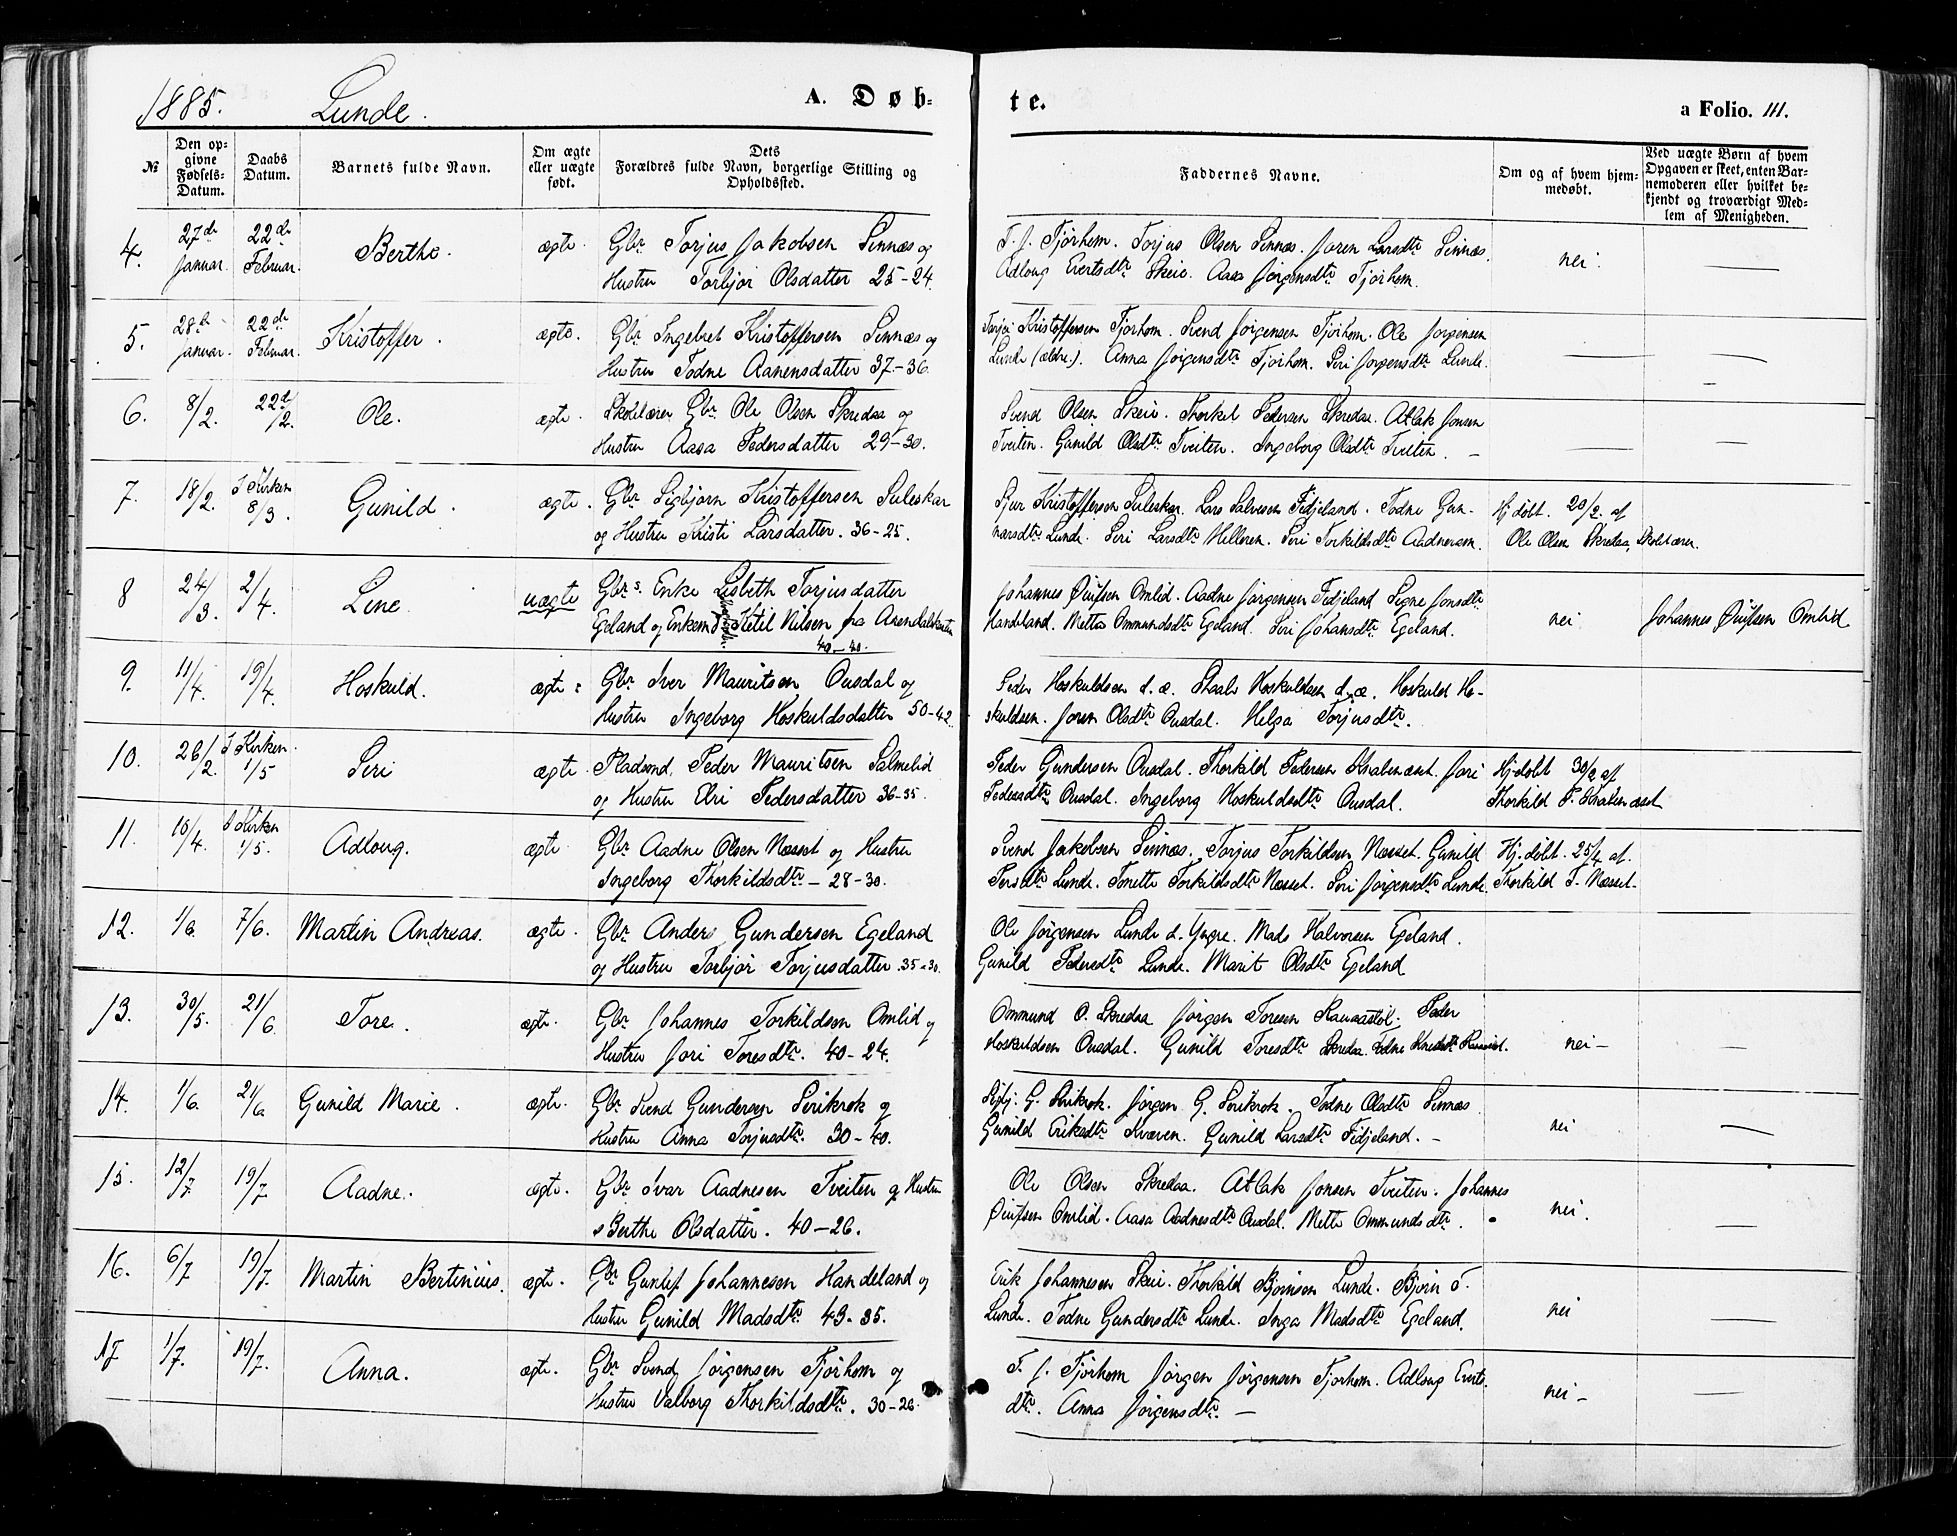 1885. Lunde. A. Døb- te. a Folio. 111.
№
Den op-
givne
Fødsels-
Datum.
Daabs
Datum.
Barnets fulde Navn.
Om ægte
eller uægte
født.
Dets
Forældres fulde Navn, borgerlige Stilling og
Opholdssted.
Faddernes Navne.
Om og af hvem hjem-
medøbt.
Ved uægte Børn af hvem
Opgaven er skeet, enten Bar-
nemoderen eller hvilket be-
kjendt og troværdigt Med-
lem af Menigheden.
4. 27de Januar. 22de Februar. Berthe. ægte. Gbr. Torjus Jakobsen Sinnæs og
Hustru Torbjør Olsdatter 25-24.
T. J. Tjørhom. Torjus Olsen Sinnæs. Joren Larsdtr Sinnæs.
Adloug Evertsdtr Skeie. Aasa Jørgensdtr Tjørhom.
nei. —
5. 28de Januar. 22de Februar. Kristoffer. ægte. Gbr. Ingebret Kristoffersen Sinnæs og
Hustru Todne Aanensdatter 37-36.
Kristoffersen Tjørhom. Svend Jørgensen Tjørhom. Ole Jørgensen
Lunde (ældre). Anna Jørgensdtr Tjørhom. Seri Jørgensdtr Lunde.
— —
6. 8/2. 22de/2. Ole. ægte. Skolelærer Gbr. Ole Olsen Skredaa og
Hustru Aasa Pedersdatter 29-30.
Svend Olsen Skeie. Thorkel Pedersen Skredaa. Atlak Jonsen
Tveiten. Gunild Olsdtr Tveiten. Ingeborg Olsdtr Tveiten. —
— —
7. 18/2. I Kirken 8/3. Gunild. ægte. Gbr. Sigbjørn Kristoffersen Suleskar
og Hustru Kristi Larsdatter. 36-25.
Sjur Kristoffersen Suleskar. Lars Salvesen Fidjeland. Todne Gun-
narsdtr Lunde. Seri Larsdtr Helleren. Seri Torkildsdtr Aadneram.
Hj døbt. 20/2. af
Ole Olsen Skredaa, Skolelærer.
8 24/3. 2/4. Line. uægte Gbr.s Enke Lisbeth Torjusdatter
Egeland og Enkemd Ketil Nilsen fra Arendalskanten
40-40.
Johannes Øiufsen Omlid. Aadne Jørgensen Fidjeland Signe Jonsdtr
Handeland. Mette Ommundsdtr Egeland. Seri Johansdtr Egeland.
nei Johannes Øiufsen Omlid.
9. 11/4. 19/4. Hoskuld. ægte. Gbr. Iver Mauritsen Ousdal og
Hustru Ingeborg Hoskuldsdatter 50-42.
Peder Hoskuldsen d. æ. Staale Hoskuldsen d. æ. Hoskuld Ho-
skuldsen. Joren Olsdtr Ousdal. Helga Torjusdtr.
10. 26/2. I Kirken 1/5 Seri ægte Pladsmd. Peder Mauritsen Salmelid
og Hustru Elri Pedersdatter 36-35.
Peder Gundersen Ousdal. Thorkild Pedersen. Jori
Pedersdtr Ousdal. Ingeborg Hoskuldsdtr Ousdal.
Hj.døbt af
Thorkild P.
11. 16/4. I Kirken 1/5. Adloug. ægte Gbr. Aadne Olsen Nesset og Hustru
Ingeborg Thorkildsdtr — 28-30.
Svend Jakobsen Sinnæs. Torjus Torkildsen Nesset. Gunild
Persdtr Lunde. Tonette Torkildsdtr Nesset. Seri Jørgensdtr Lunde.
Hj. døbt. 25/4 af.
Thorkild T. Nesset.
12. 1/6. 7/6. Martin Andreas. ægte. Gbr. Anders Gundersen Egeland
og Hustru Torbjør Torjusdatter. 35-30.
Ole Jørgensen Lunde d. Yngre. Mads Halvorsen Egeland.
Gunild Pedersdtr Lunde. Marit Olsdtr Egeland
13. 30/5. 21/6. Tore. ægte. Gbr. Johannes Torkildsen Omlid og
Hustru Jori Toresdtr. 40-24.
Ommund O. Skredaa Jørgen Toresen. Peder
Hoskuldsen Ousdal. Gunild Toresdtr Skredaa. Todne
nei — —
14. 1/6. 21/6. Gunild Marie. ægte. Gbr. Svend Gundersen Serikrok og
Hustru Anna Torjusdtr. 30-40.
Sigbj. G. Serikrok. Jørgen G. Serikrok. Todne Olsdtr Sinnæs
Gunild Eriksdtr Kvæven. Gunild Larsdtr Fidjeland. —
nei —
15. 12/7. 19/7 Aadne. ægte. Gbr. Ivar Aadnesen Tveiten og Hustru
Berthe Olsdatter. 40-26.
Ole Olsen Skredaa. Atlak Jonsen Tveiten. Johannes
Øiufsen Omlid. Aasa Aadnesdtr Ousdal. Mette Ommundsdtr.
nei. —
16. 6/7 19/7. Martin Bertinius. ægte. Gbr. Gunlef Johannesen Handeland og
Hustru Gunild Madsdtr. 43-35.
Erik Johannesen Skeie. Thorkild Bjørnsen Lunde. Bjørn T.
Lunde. Todne Gundersdtr Lunde. Inga Madsdtr Egeland.
nei —
17 1/7. 19/7. Anna. ægte. Gbr. Svend Jørgensen Tjørhom og
Hustru Valborg Thorkildsdtr. 30-26.
T. J. Tjørhom Jørgen Jørgensen Tjørhom. Adloug Everts-
dtr. Anna Jørgensdtr. —
nei — —